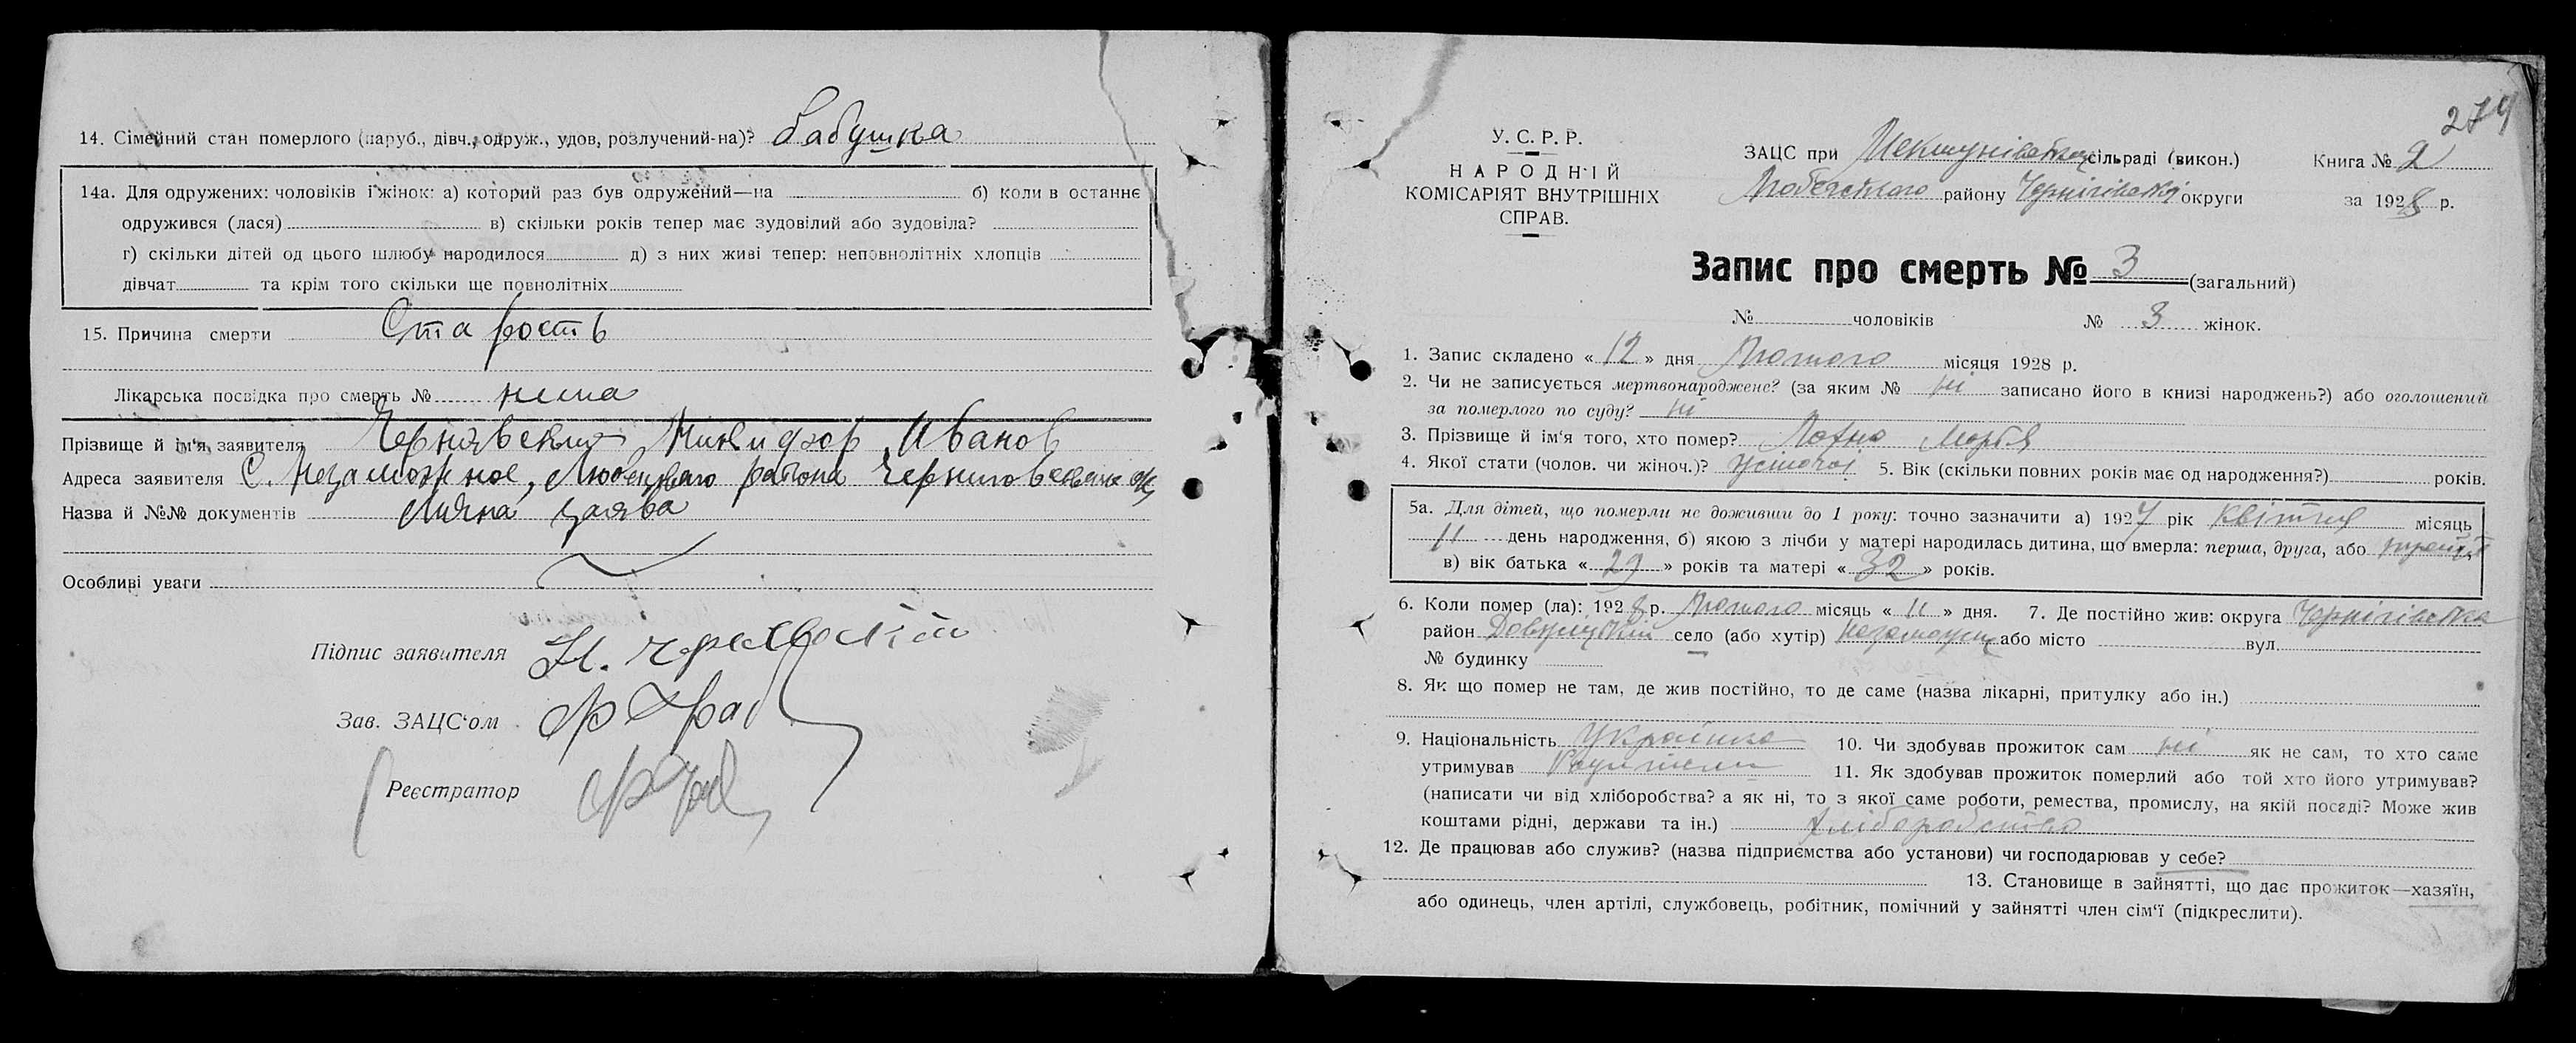 14. Сімейний стан померлого (паруб., дівч., одруж., удов, розлучений-на)? бабушка
14а. Для одружених: чоловіків і жінок: а) которий раз був одружений—на б) коли в останнє
одружився (лася) в) скільки років тепер має зудовілий або зудовіла?
г) скільки дітей од цього шлюбу народилося д) з них живі тепер: неповнолітніх хлопців
дівчат та крім того скільки ще повнолітніх
15. Причина смерти Старость
Лікарська посвідка про смерть № нема
Прізвище й ім'я заявителя Чернявский Никифор Иванов
Адреса заявителя С. Незаможное, района
Назва й №№ документів заява
Особливі уваги
Підпис заявителя
Зав. ЗАЦС'ом
Реєстратор
279
У. С. Р. Р.
НАРОДНІЙ
КОМІСАРІЯТ ВНУТРІШНІХ
СПРАВ.
ЗАЦС при сільраді (викон.) Книга № 2
району Чернігівської округи за 1928 р.
Запис про смерть № 3 (загальний)
№ чоловіків № 3 жінок.
1. Запис складено « 12 » дня Лютого місяця 1928 р.
2. Чи не записується мертвонароджене? (за яким № ні записано його в книзі народжень?) або оголошений
за померлого по суду? ні
3. Прізвище й ім'я того, хто помер?
4. Якої стати (чолов. чи жіноч.)? 5. Вік (скільки повних років має од народження?) років.
5а. Для дітей, що померли не доживши до 1 року: точно зазначити а) 1927 рік квітня місяць
11 день народження, б) якою з лічби у матері народилась дитина, що вмерла: перша, друга, або
в) вік батька « 29 » років та матері « 32 » років.
6. Коли помер (ла): 1928 р. Лютого місяць « 11 » дня. 7. Де постійно жив: округа Чернігівська
район село (або хутір) або місто вул.
№ будинку
8. Як що помер не там, де жив постійно, то де саме (назва лікарні, притулку або ін.)
9. Національність 10. Чи здобував прожиток сам ні як не сам, то хто саме
утримував 11. Як здобував прожиток померлий або той хто його утримував?
(написати чи від хліборобства? а як ні, то з якої саме роботи, ремества, промислу, на якій посаді? Може жив
коштами рідні, держави та ін.) хліборобство
12. Де працював або служив? (назва підприємства або установи) чи господарював у себе?
13. Становище в зайнятті, що дає прожиток—хазяїн,
або одинець, член артілі, службовець, робітник, помічний у зайнятті член сім'ї (підкреслити).